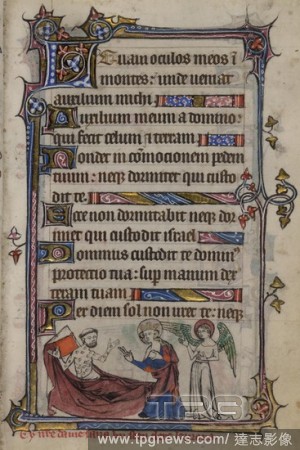 Levavi oculos meos ī
montes: unde veniat
auxilium michi
Auxilium meum a domino:
qui fecit celum ⁊ terram
Non det in cōmocionem pedem
tuum: neqȝ dormitet qui custo
dit te
Ecce non dormitabit neqȝ dor
miet qui custodit israel
Dominus custodit te dominꝰ
protectio tua: suꝑ manum dex
teram tuam
Per diem sol non uret te: neqȝ
TPG
www.tpgnews.com/ 達志影像